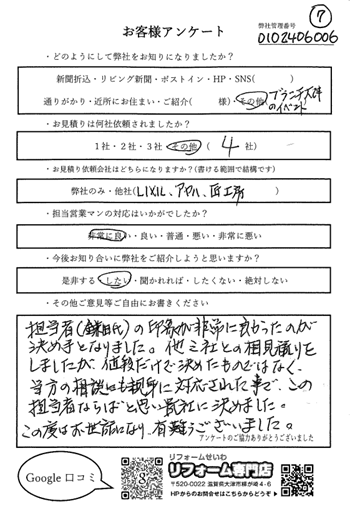 ⑦
お客様アンケート
弊社管理番号
0102406006
・どのようにして弊社をお知りになりましたか？
新聞折込・リビング新聞・ポストイン・HP・SNS(　　　)
通りがかり・近所にお住まい・ご紹介(　　　様)・その他
のイベント
・お見積りは何社依頼されましたか？
1社・2社・3社 その他 ( 4 社)
・お見積り依頼会社はどちらになりますか？(書ける範囲で結構です)
弊社のみ・他社(LIXIL、アヤハ、匠工房 )
・担当営業マンの対応はいかがでしたか？
非常に良い・良い・普通・悪い・非常に悪い
・今後お知り合いに弊社をご紹介しようと思いますか？
是非する・したい・聞かれれば・したくない・絶対しない
・その他ご意見等ご自由にお書きください
担当者(鎌田氏)の印象が非常に良かったのが
決め手となりました。他三社との相見積りを
しましたが、値段だけで決めたものではなく、
当方の相談にも親身に対応された事で、この
担当者ならばと思い貴社に決めました。
この度はお世話になり、有難うございました。
アンケートのご協力ありがとうございました
Google口コミ
リフォームせいわ
リフォーム専門店
〒520-0022 滋賀県大津市柳が崎4-6
HPからのお問合せはこちらからどうぞ